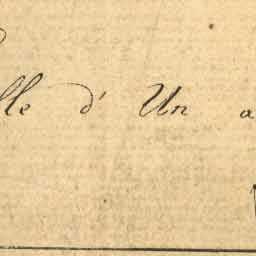 lle d' Un a